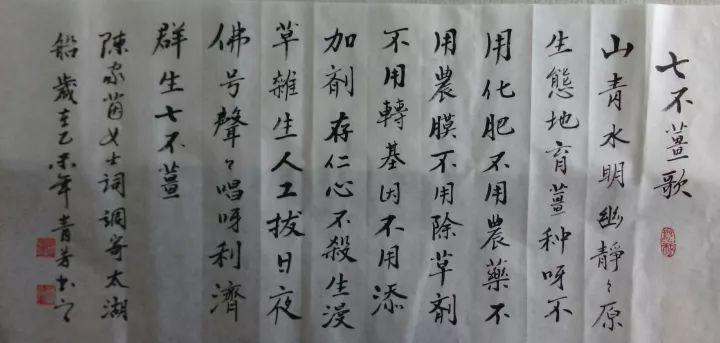 七不薑歌
山青水明幽靜〻原
生態地育薑種呀不
用化肥不用農藥不
用農膜不用除草劑
不用轉基因不用添
加劑存仁心不殺生漫
草雜生人工拔日夜
佛号聲〻唱呀利濟
群生七不薑
陳家茵女士詞調寄太湖
船歲在乙未年青芳书